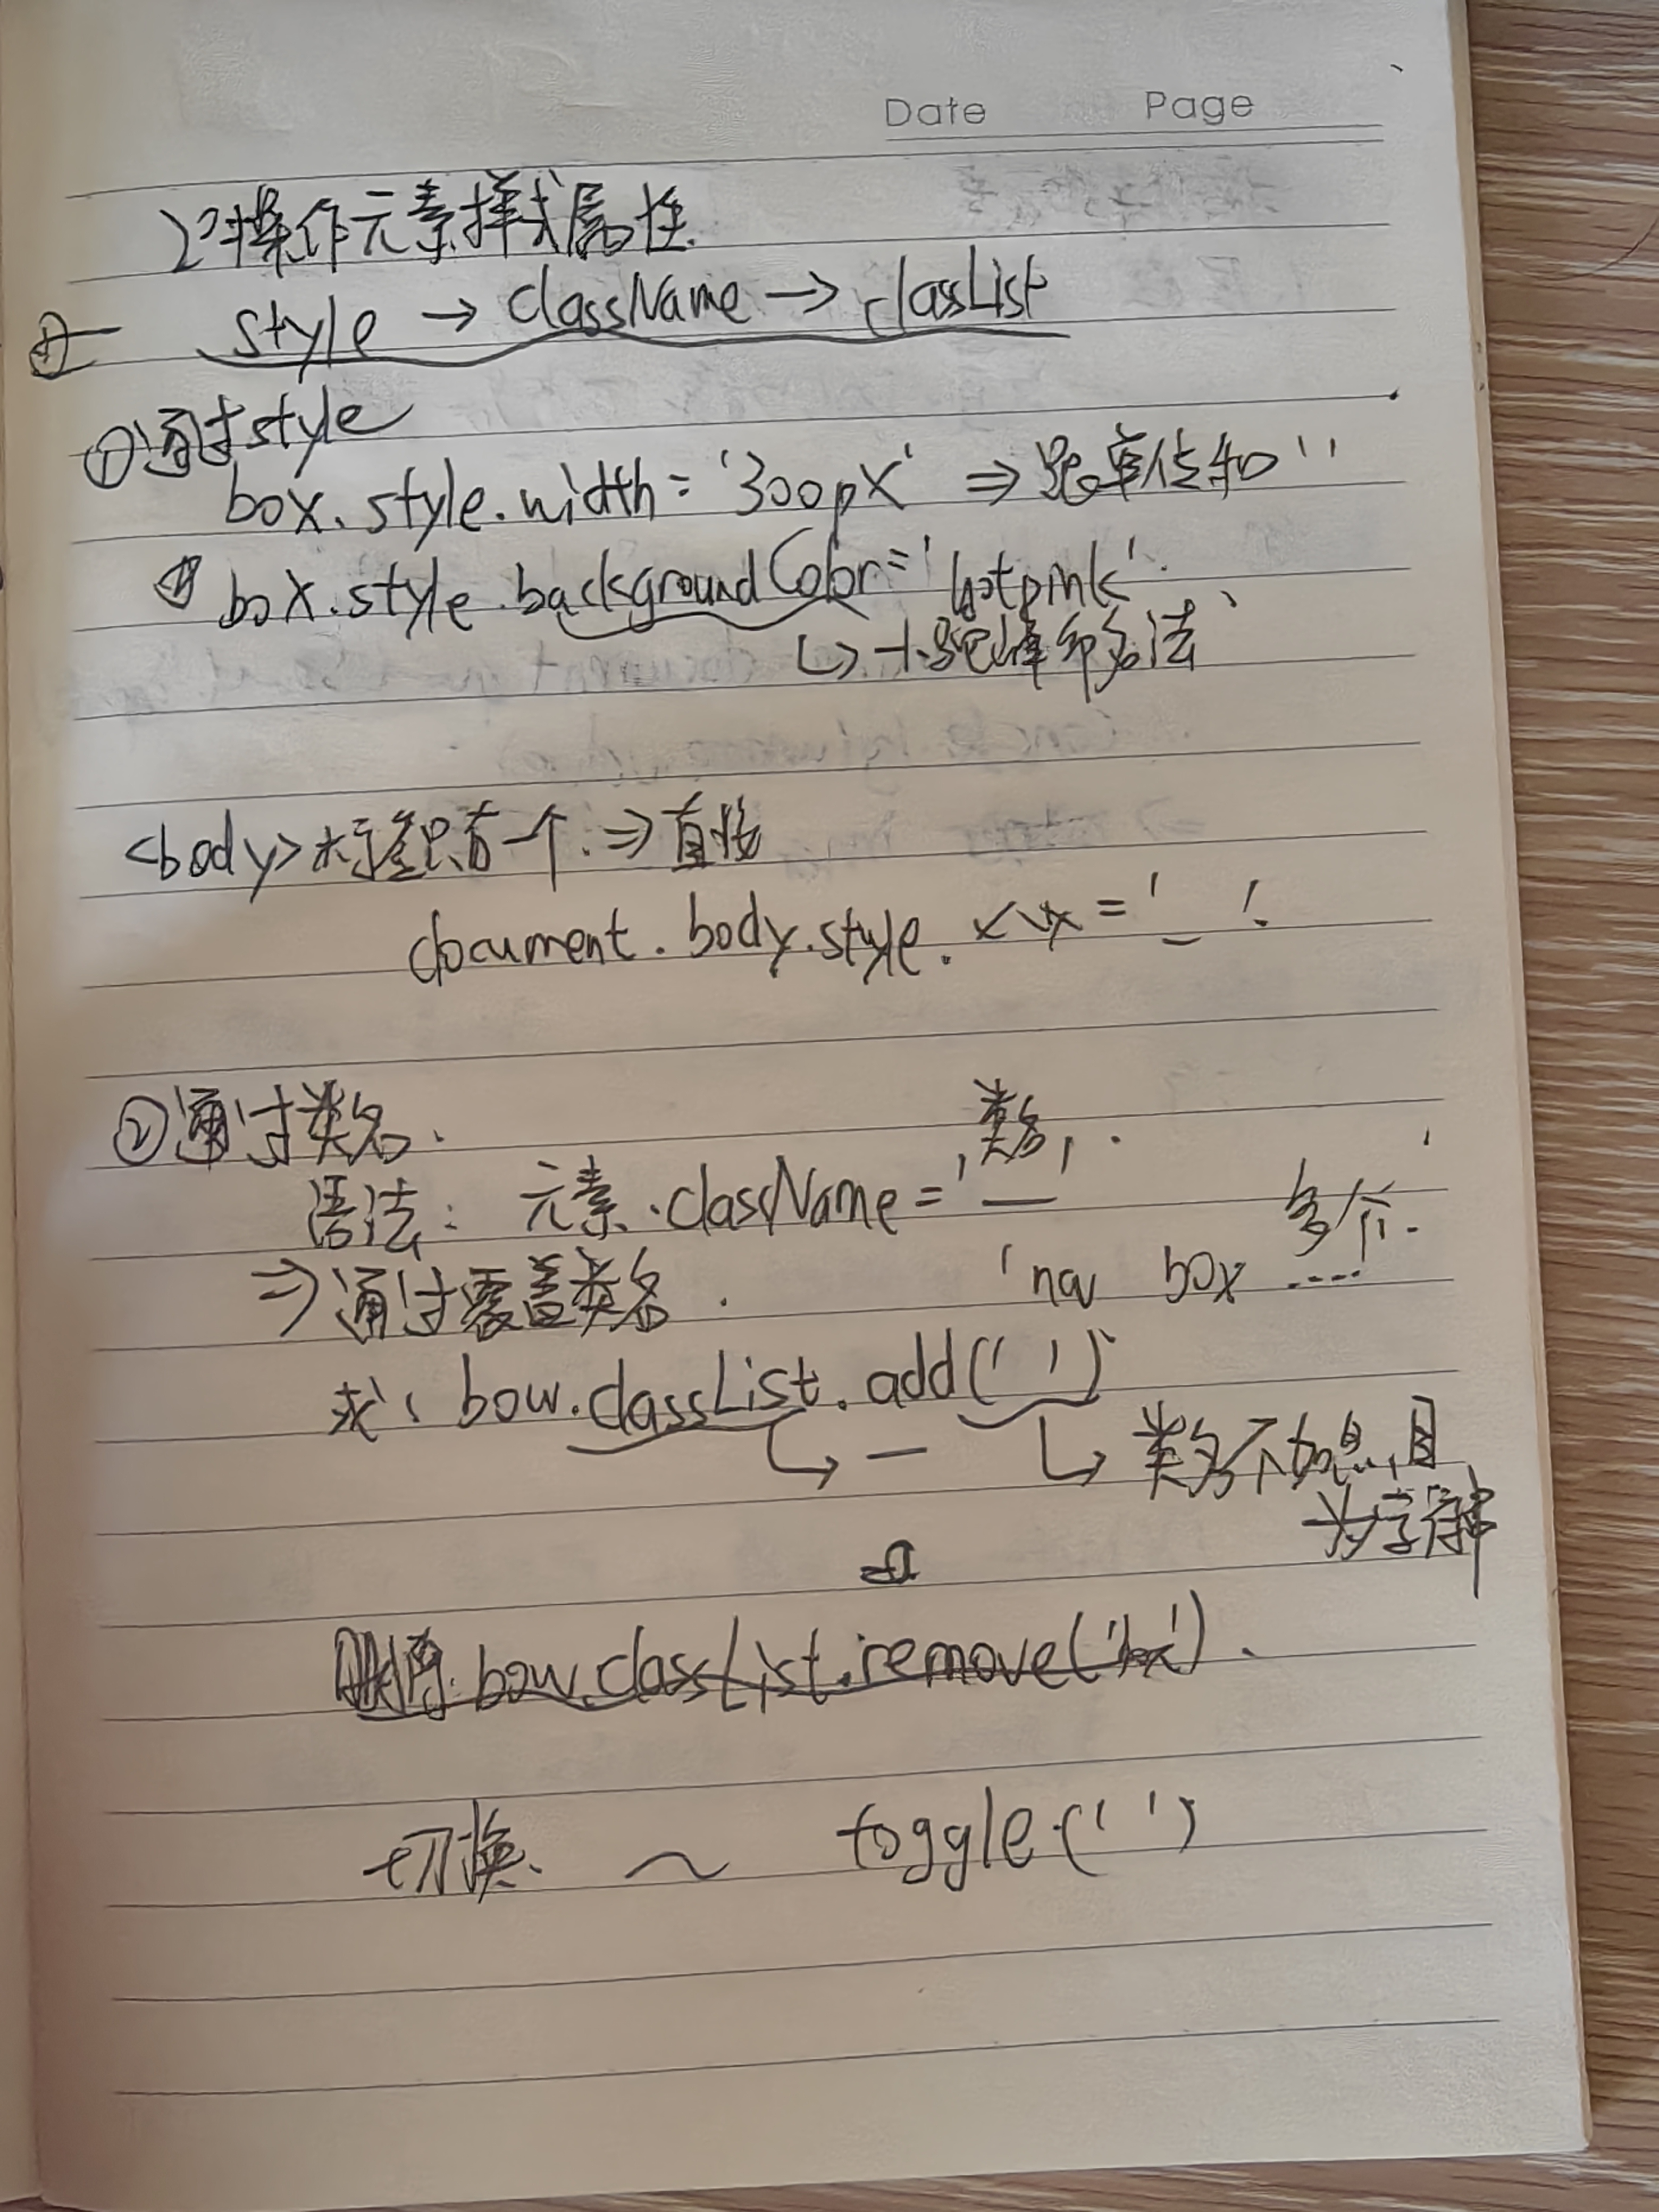 Date Page
2> 操作元素样式属性.
style → className → classList
①通过style
box.style.width = '300px' ⇒ 跟单位和''
box.style.backgroundColor = 'hotpink'.
↳ 小驼峰命名法
<body>标签只有一个. ⇒ 直接
document.body.style. = ' _ '.
②通过类名.
'类名'.
语法: 元素.className = '—'
多个.
⇒ 通过覆盖类名. 'nav box ....'
求: bow.classList.add(' ')
↳ — ↳ 类名不加点,且
为字符
删除. bow.classList.remove('box').
切换. ~ toggle(' ')